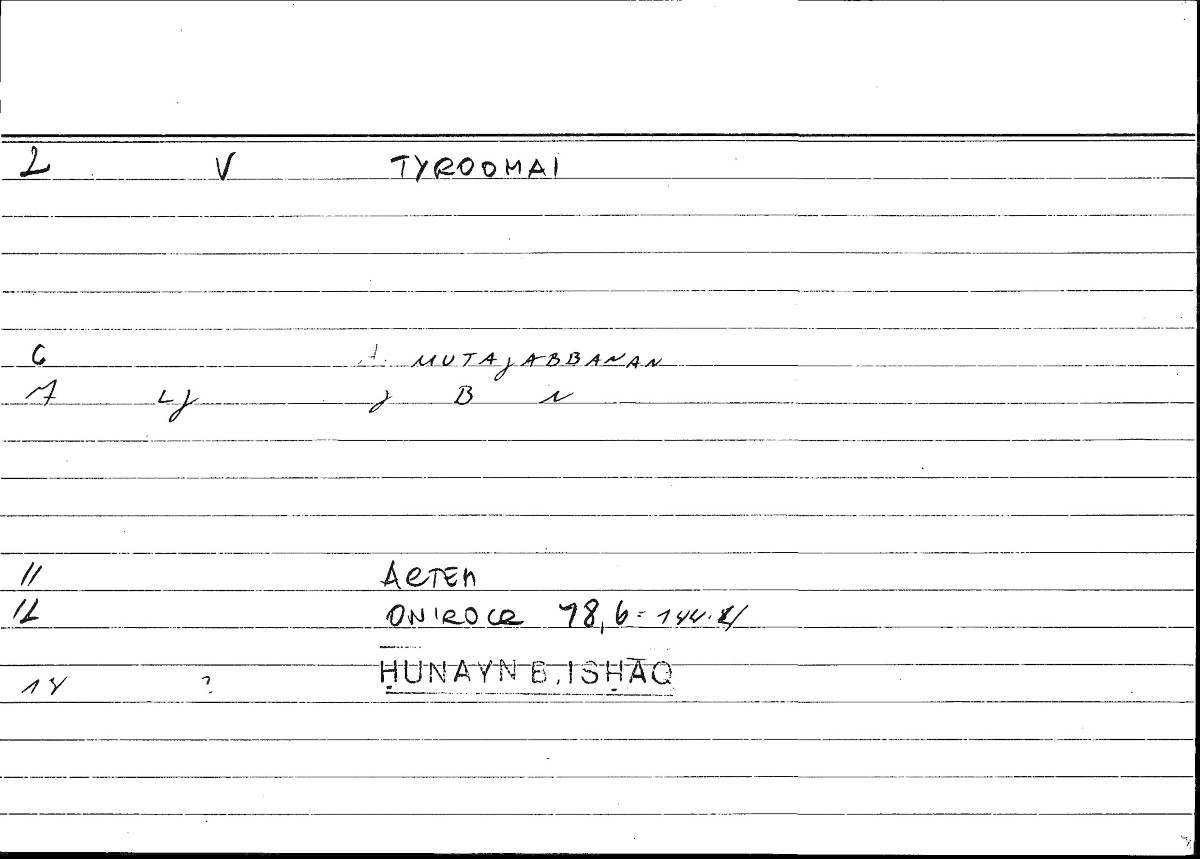 2 V TYROOMAI
6 MUTAJABBANAN
7 LJ J B N
11 ARTEM
12 ONIROCR 78,6 = 144.2/
14 ? ḤUNAYN B. ISḤĀQ